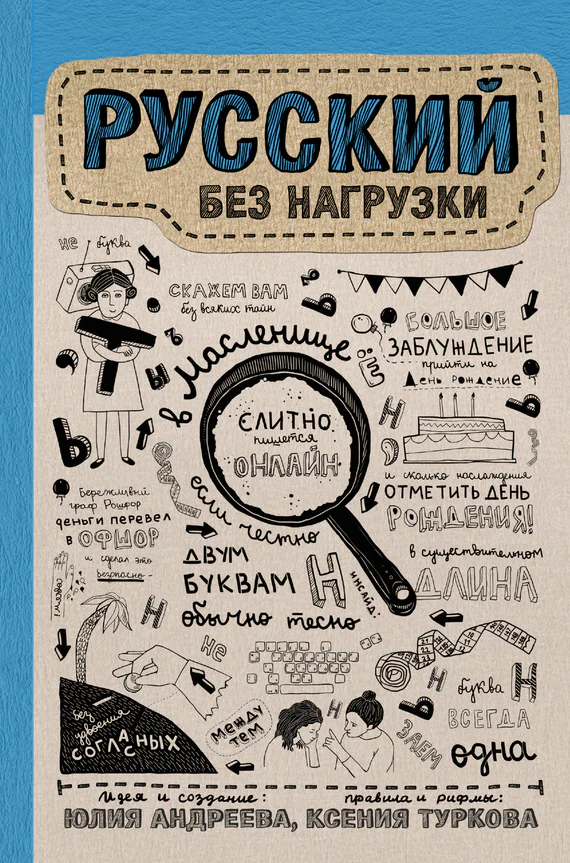 РУССКИЙ
БЕЗ НАГРУЗКИ
не буква
СКАЖЕМ ВАМ
без всяких тайн
Т
Ь
в масленице
СЛИТНО
пишется
ОНЛАЙН
БОЛЬШОЕ
ЗАБЛУЖДЕНИЕ
прийти на
День рождение
и сколько наслаждения
ОТМЕТИТЬ ДЕНЬ
РОЖДЕНИЯ!
Бережливый
граф Рошфор
деньги перевел
в ОФШОР
и сделал это
безопасно
если честно
ДВУМ
БУКВАМ
Н
обычно тесно
ИНСАЙД:
в существительном
ДЛИНА
буква Н
ВСЕГДА
одна
не
без
удвоения
СОГЛАСНЫХ
МЕЖДУ
ТЕМ
Н
ЗАЕМ
Идея и создание: правила и рифмы:
ЮЛИЯ АНДРЕЕВА, КСЕНИЯ ТУРКОВА